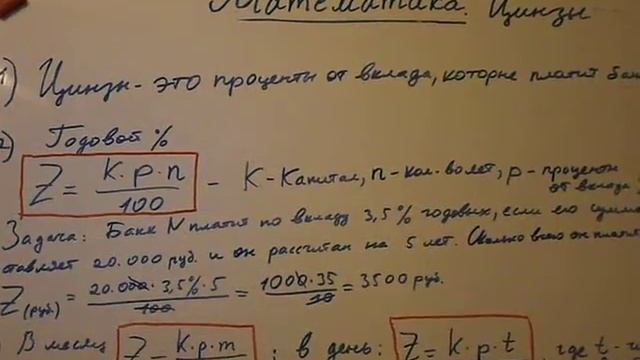 Математика. Цинзы
1) Цинзы - это проценты от вклада, которые платит бан
2) Годовой %
Z = K·p·n / 100 - K - Капитал, n - кол-во лет, p - проценты от вклада
Задача: Банк N платит по вкладу 3,5% годовых, если его сумма
тавляет 20.000 руб. и он рассчитан на 5 лет. Сколько всего он платит
Z(руб.) = 20.000 · 3,5% · 5 / 100 = 1000 · 35 / 10 = 3500 руб.
В месяц Z = K·p·m ; в день: Z = K·p·t где t -